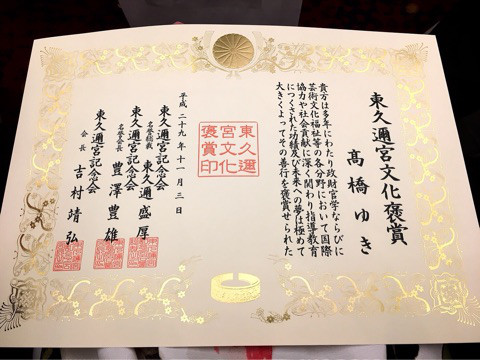 東久邇宮文化褒賞
髙橋ゆき
貴方は多年にわたり政財官学ならびに
芸術文化福祉等の各分野において国際
協力や社会貢献に深く関わり指導教育
につくされた功績及び未来への夢は極めて
大きくよってその善行を褒賞せられた
東久邇
宮文化
褒賞印
平成二十九年十一月三日
東久邇宮記念会
名誉総裁 東久邇盛厚
東久邇宮記念会
名誉会長 豊澤豊雄
東久邇宮記念会
会長 吉村靖弘